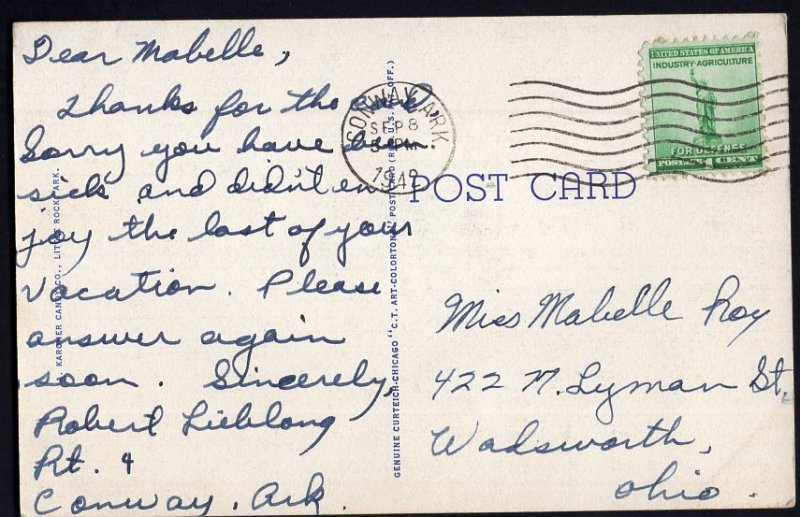 Dear Mabelle,
Thanks for the card.
Sorry you have been
sick and didn't en
joy the last of your
vacation. Please
answer again
soon. Sincerely,
Robert Lieblong
Rt. 4
Conway, Ark.
KARCHER CANDY CO., LITTLE ROCK, ARK.
GENUINE CURTEICH-CHICAGO "C.T. ART-COLORTONE" POST CARD (REG. U.S. PAT. OFF.)
CONWAY, ARK.
SEP 8
PM
1942
UNITED STATES OF AMERICA
INDUSTRY-AGRICULTURE
FOR DEFENSE
POSTAGE 1 CENT
POST CARD
Miss Mabelle Roy
422 N. Lyman St.
Wadsworth,
Ohio.